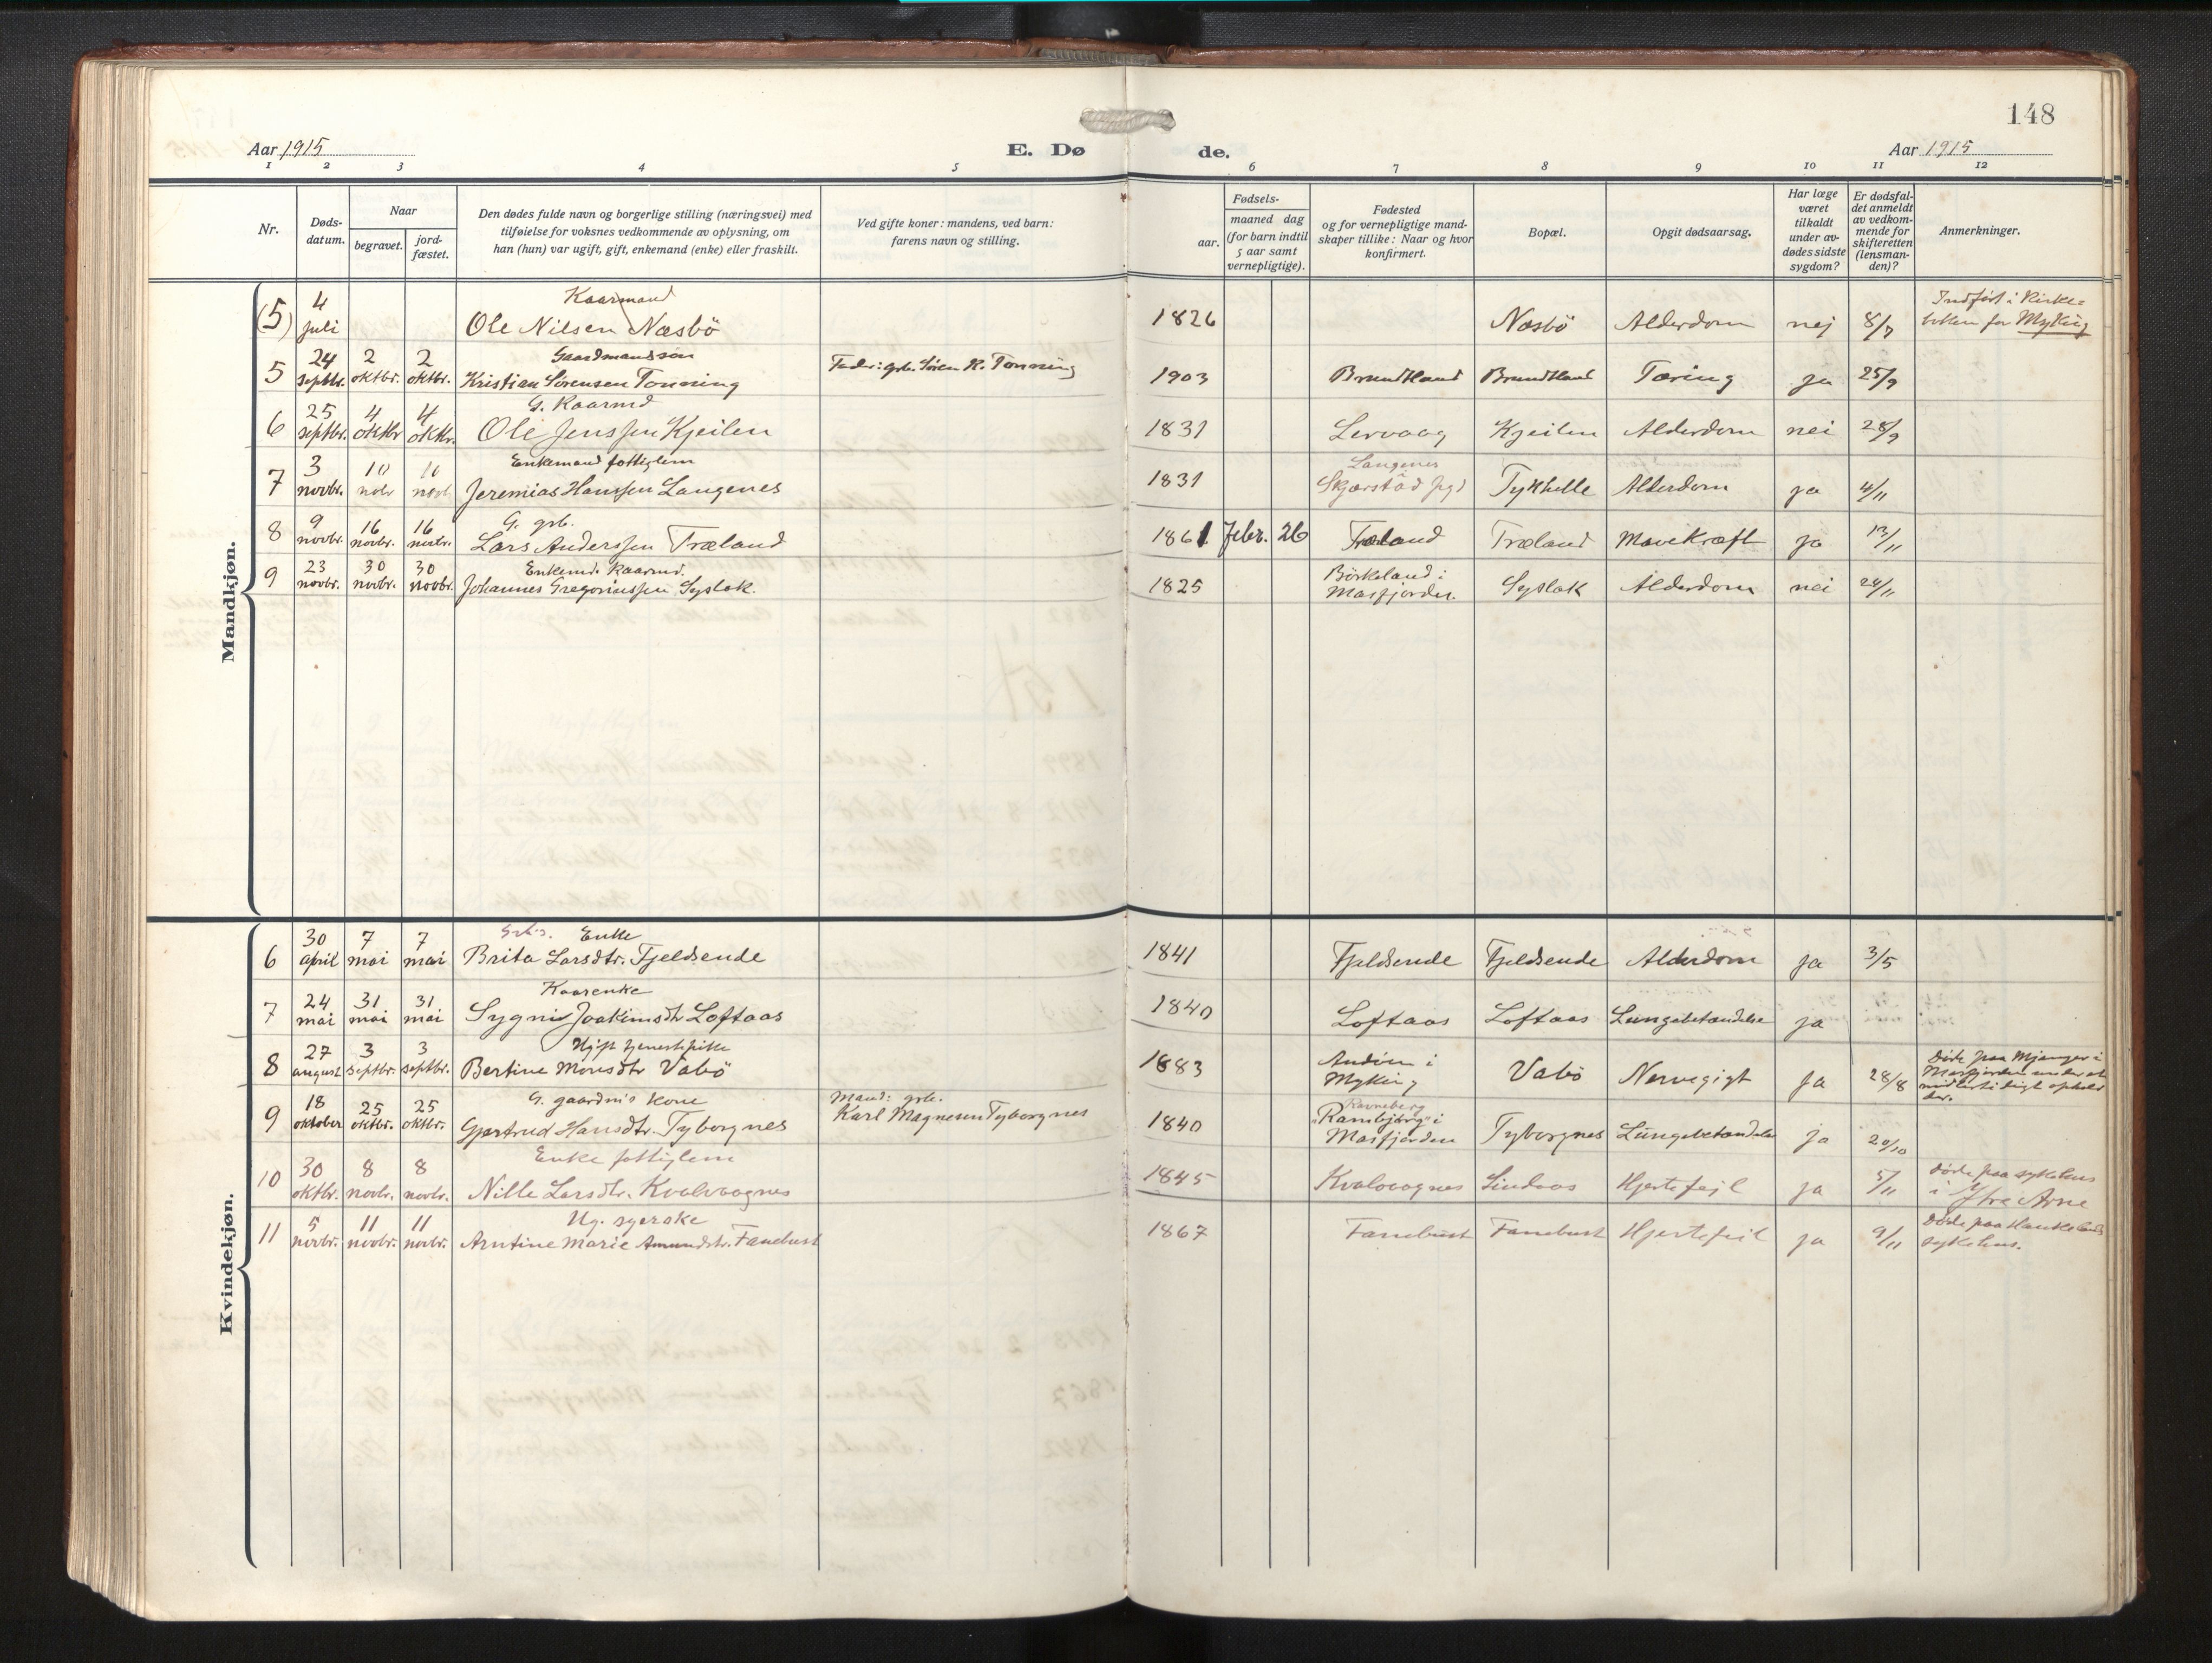 148
Aar 1915
E. Dø de.
Aar 1915
1 2 3 4 5 6 7 8 9 10 11 12
Nr.
Døds-
datum.
Naar
begravet.
jord-
fæstet.
Den dødes fulde navn og borgerlige stilling (næringsvei) med
tilføielse for voksnes vedkommende av oplysning, om
han (hun) var ugift, gift, enkemand (enke) eller fraskilt.
Ved gifte koner: mandens, ved barn:
farens navn og stilling.
Fødsels-
aar.
maaned dag
(for barn indtil
5 aar samt
vernepligtige).
Fødested
og for vernepligtige mand-
skaper tillike: Naar og hvor
konfirmert.
Bopæl.
Opgit dødsaarsag.
Har læge
været
tilkaldt
under av-
dødes sidste
sygdom?
Er dødsfal-
det anmeldt
av vedkom-
mende for
skifteretten
(lensman-
den)?
Anmerkninger.
Mandkjøn.
Kaarmand
(5) 4 juli Ole Nilsen Næsbö 1826 Næsbö Alderdom nej 8/7 Indført i Kirke-
boken for Myking
Gaardmandssøn
5 24 septbr. 2 oktbr. 2 oktbr. Kristian Sørensen Tonning Fader: grb. Søren R. Tonning 1903 Brundtland Brundtland Tæring ja 25/9
G. Kaarmd
6 25 septbr. 4 oktbr 4 oktbr. Ole Jenssen Kjeilen 1831 Lervaag Kjeilen Alderdom nei 28/9
Enkemand fattiglem
7 3 novbr. 10 nobr 10 novb Jeremias Hanssen Langenes 1831 Langenes
Skjærstad Tykhelle Alderdom ja 4/11
G. grb.
8 9 novbr. 16 novbr. 16 novbr. Lars Anderssen Træland 1861 Febr. 26 Træland Træland Mavekræft ja 13/11
Enkemd. Kaarmd.
9 23 novbr. 30 novbr. 30 novbr. Johannes Gregoriussen Syslak. 1825 Börkeland i
Masfjorden. Syslak Alderdom nei 24/11
Kvindekjøn.
Enke
6 30 april 7 mai 7 mai Brita Larsdtr. Fjeldsende 1841 Fjeldsende Fjeldsende Alderdom ja 3/5
Kaarenke
7 24 mai 31 mai 31 mai Sygni Joakimsdtr Loftaas 1840 Loftaas Loftaas Lungebetændelse ja
Ugift tjenestepike
8 27 august 3 septbr. 3 septbr. Bertine Monsdtr Vabö 1883 Andöen i
Myking Vabö Nervegigt ja 28/8 Döde paa Mjanger i
Masfjorden under et
midlertidigt ophold
der.
G. gaardm's kone
9 18 oktober 25 oktbr. 25 oktbr. Gjertrud Hansdtr. Tyborgnes Mand: grb.
Karl Magnesen Tyborgnes 1840 Ravneberg
"Rambjörg" i
Masfjorden Tyborgnes Lungebetændelse ja 20/10
Enke fattiglem
10 30 oktbr. 8 novbr. 8 novbr. Nille Larsdtr. Kvalvaagnes 1845 Kvalvaagnes Lindaas Hjertefejl ja 5/11 döde paa sykehus
i Ytre Arne
Ug.
11 5 novbr. 11 novbr. 11 novbr. Arntine Marie Amundstr. Fanebust 1867 Fanebust Fanebust Hjertefeil ja 9/11 Döde paa Haukelands
sykehus.